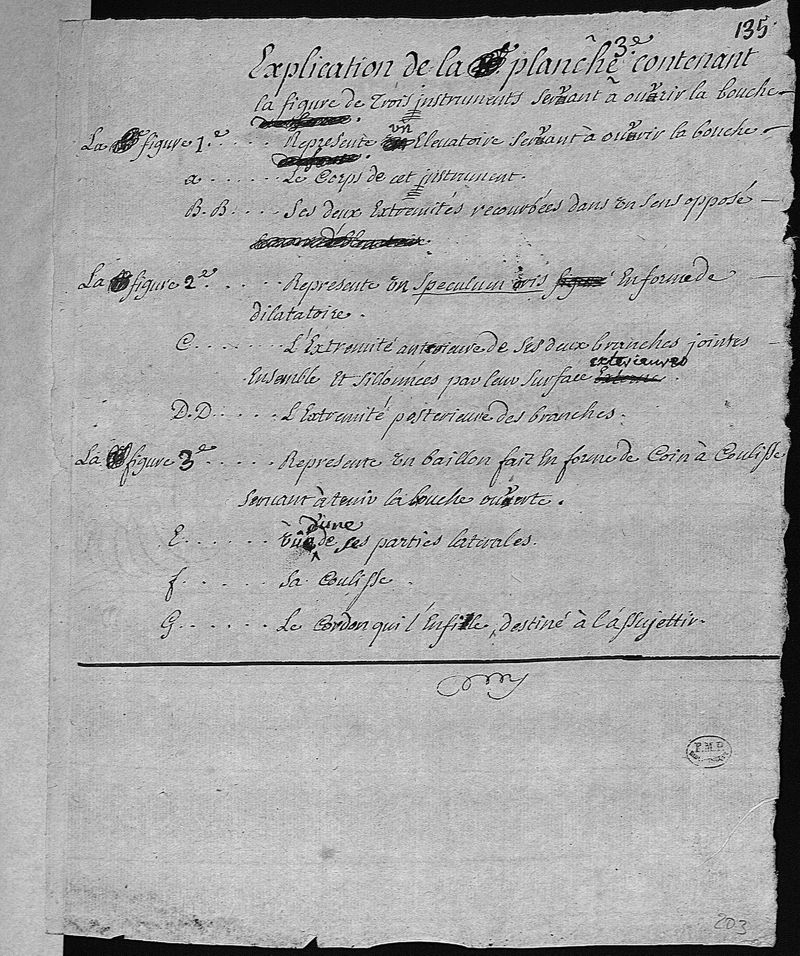 135.
Explication de la planche 3.e contenant
la figure de Trois instruments servant à ouvrir la bouche
La figure 1.e ..... Represente un Elevatoire servant à ouvrir la bouche
a ....... Le Corps de cet instrument.
B.B .... Ses deux Extremités recourbées dans un sens opposé
La figure 2.e ...... Represente un speculum oris En forme de
dilatatoire.
C ........ L'Extremité anterieure de ses deux branches jointes
Ensemble Et sillonnées par leur surface exterieures.
D.D ..... L'Extremité posterieure des branches.
La figure 3.e ...... Represente un baillon fait En forme de Coin à Coulisse
servant à tenir la bouche ouverte.
E ....... vüe d'une de ses parties laterales.
f ....... sa Coulisse.
G ...... Le Cordon qui l'Enfille, destiné à l'assujettir.
203